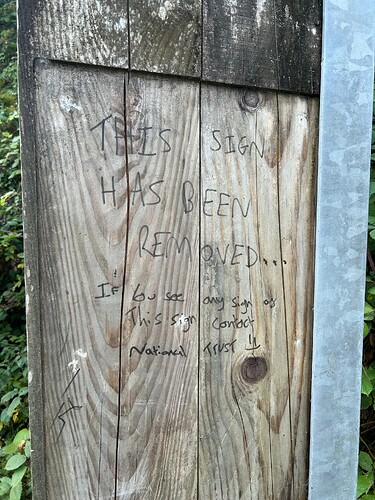 THIS SIGN
HAS BEEN
REMOVED...
If you see any sign of
This sign contact
National Trust !!